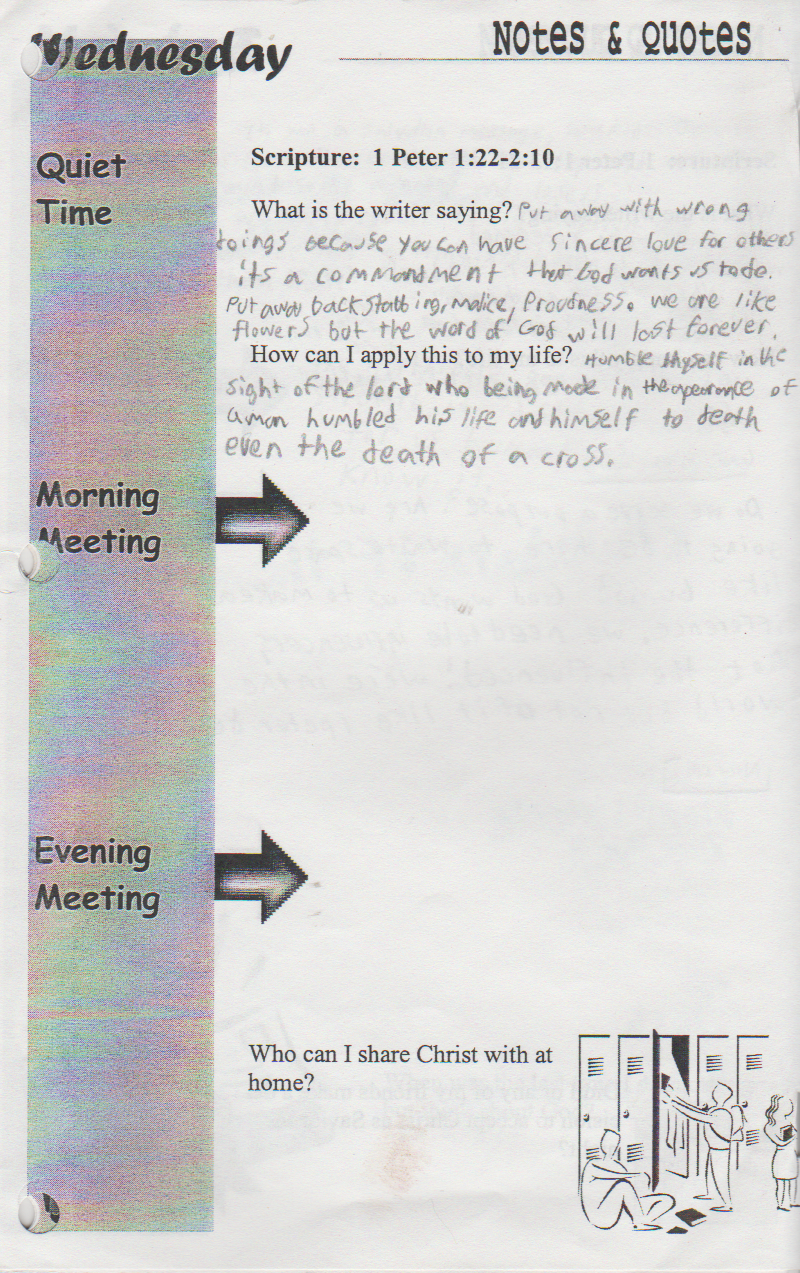 Wednesday
Notes & Quotes
Quiet
Time
Scripture: 1 Peter 1:22-2:10
What is the writer saying? Put away with wrong
doings because you can have sincere love for others
its a commandment that God wants us to do.
Put away backstabbing, malice, Proudness. we are like
flowers but the word of God will last forever.
How can I apply this to my life? Humble thyself in the
sight of the lord who being made in the apearance of
a man humbled his life and himself to death
even the death of a cross.
Morning
Meeting
Evening
Meeting
Who can I share Christ with at
home?